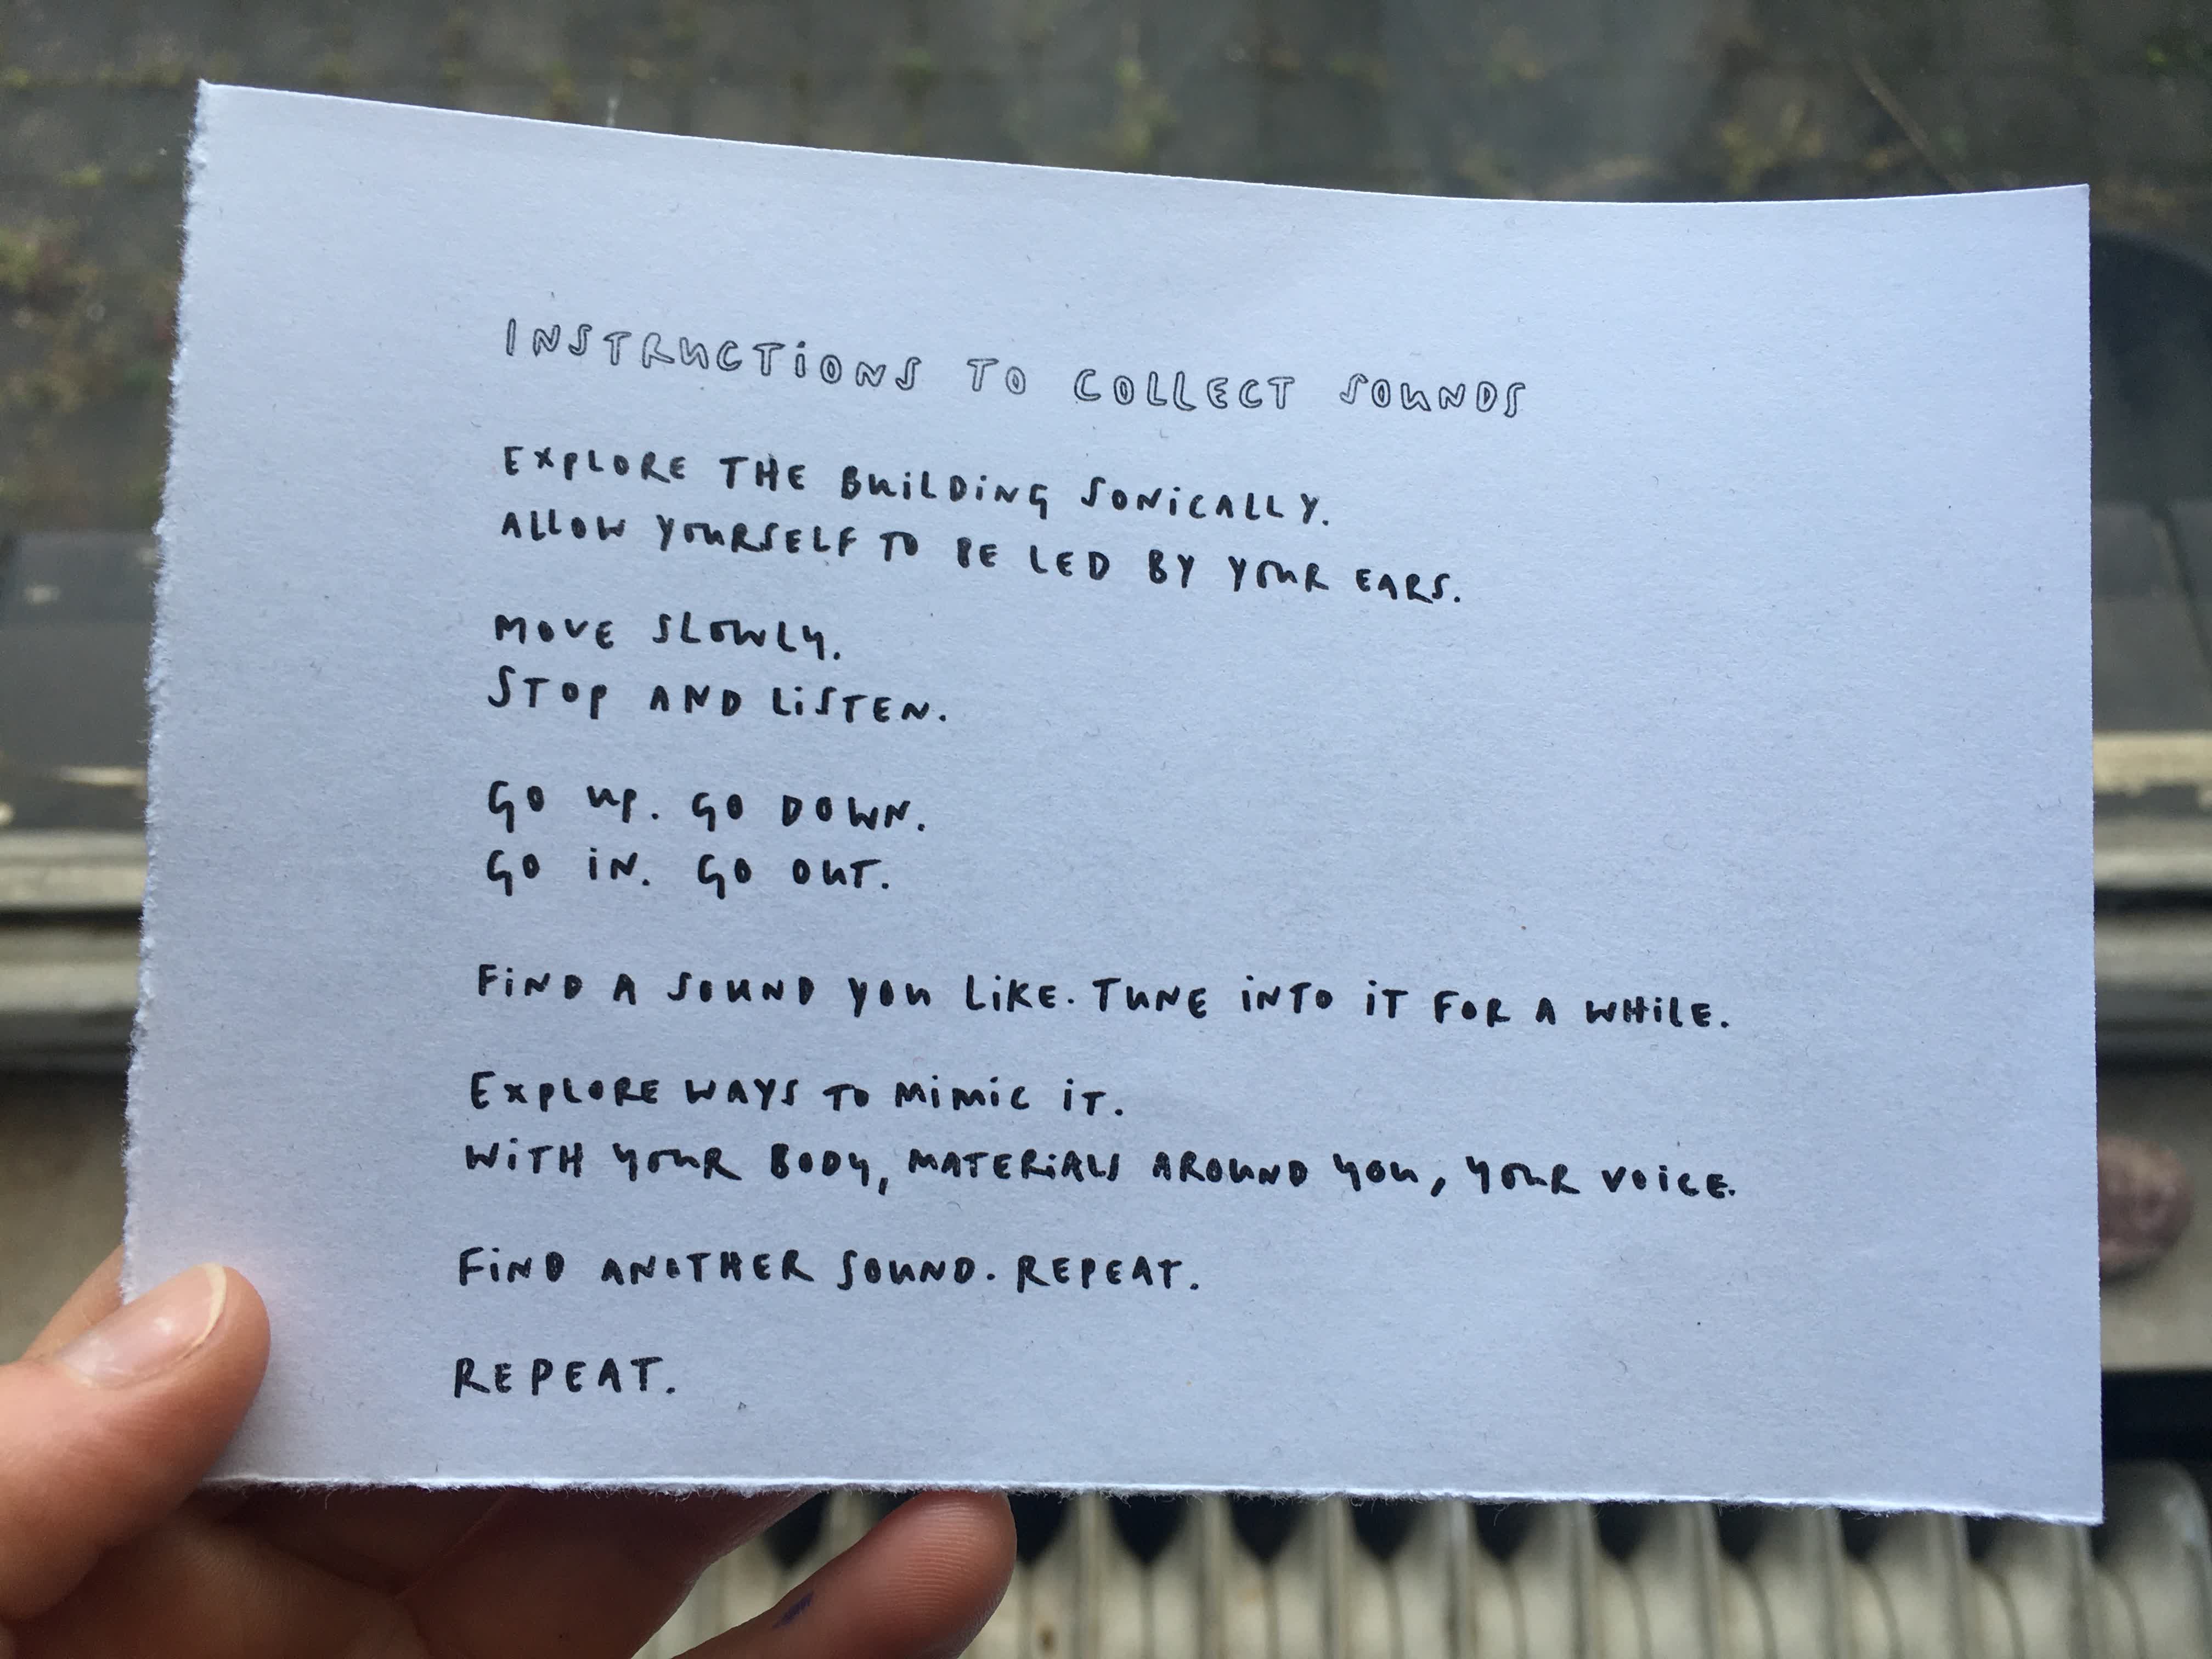 INSTRUCTIONS TO COLLECT SOUNDS
EXPLORE THE BUILDING SONICALLY.
ALLOW YOURSELF TO BE LED BY YOUR EARS.
MOVE SLOWLY.
STOP AND LISTEN.
GO UP. GO DOWN.
GO IN. GO OUT.
FIND A SOUND YOU LIKE. TUNE INTO IT FOR A WHILE.
EXPLORE WAYS TO MIMIC IT.
WITH YOUR BODY, MATERIALS AROUND YOU, YOUR VOICE.
FIND ANOTHER SOUND. REPEAT.
REPEAT.